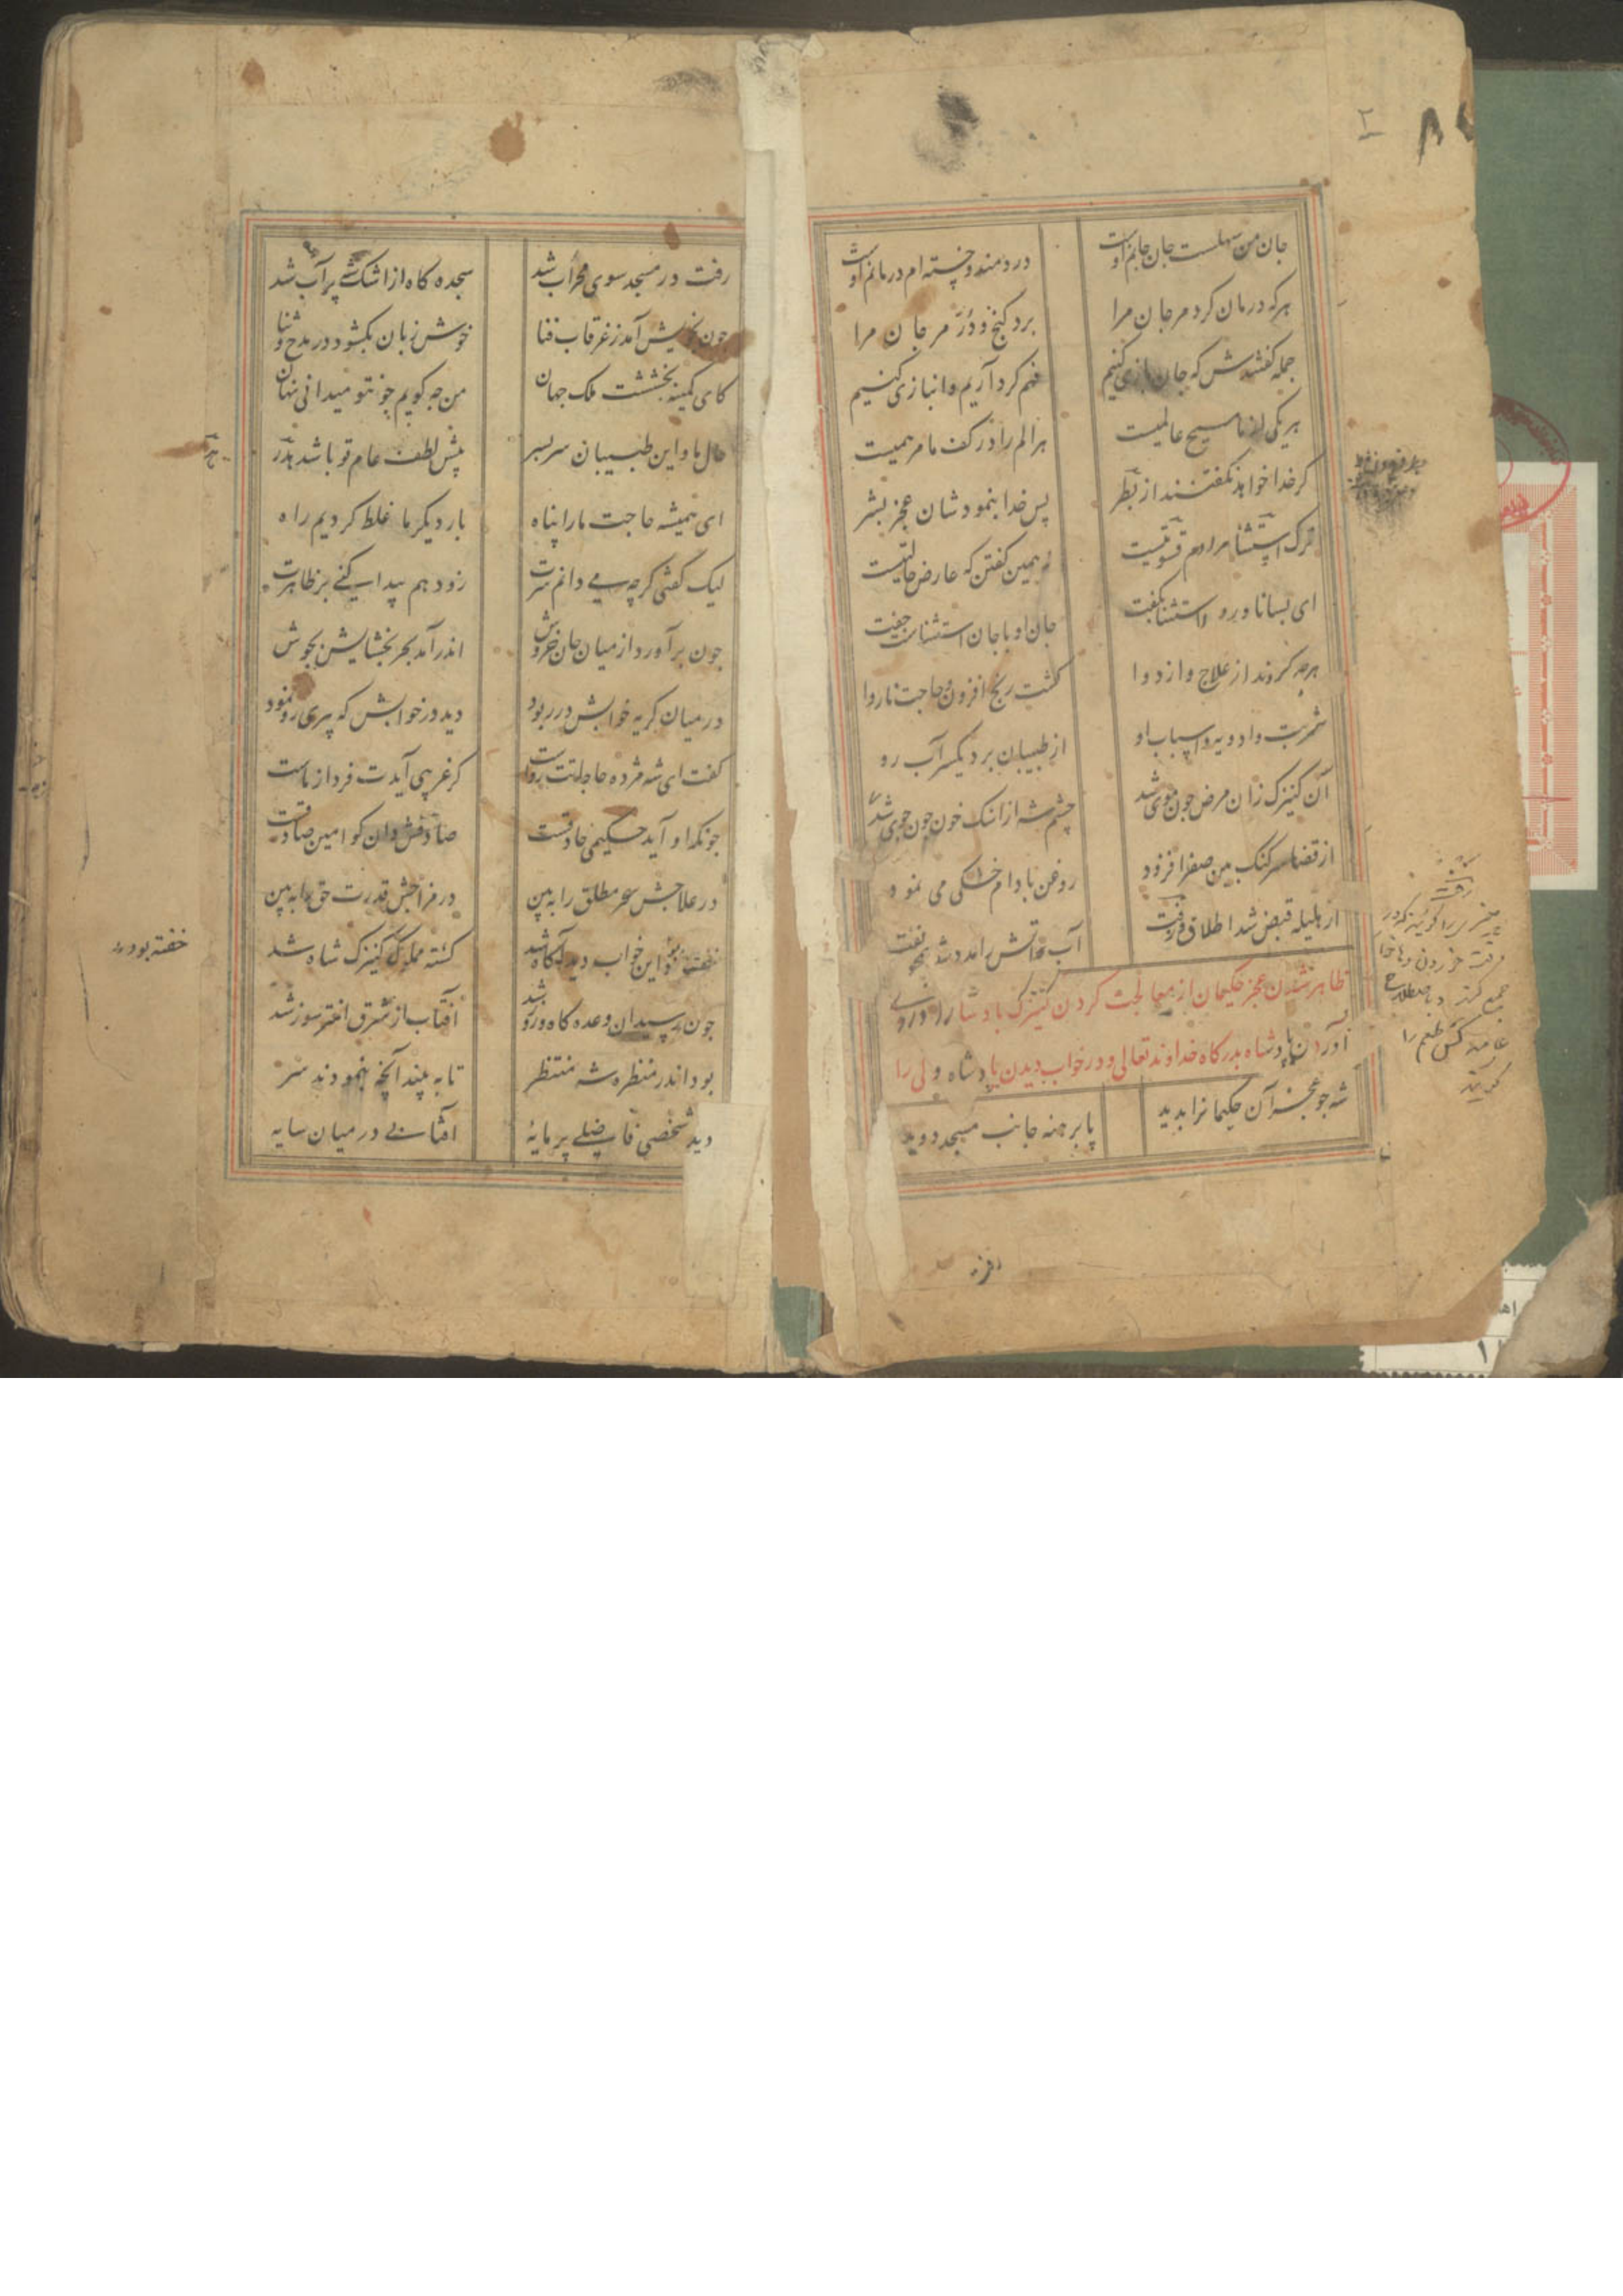 جان من سهلست جان جانم اوست
دردمند و خسته ام درمانم اوست
هرکه درمان کرد مر جان مرا
برد گنج و در مرجان مرا
جمله گفتندش که جان بازی کنیم
فهم گرد آریم و انبازی کنیم
هر یکی از ما مسیح عالمیست
هر الم را در کف ما مرهمیست
گر خدا خواهد نگفتند از بطر
پس خدا بنمودشان عجز بشر
ترک استثنا مرادم قسوتیست
نه همین گفتن که عارض حالتیست
ای بسا ناورده استثنا بگفت
جان او با جان استثناست جفت
هرچه کردند از علاج و از دوا
گشت رنج افزون و حاجت ناروا
شربت و ادویه و اسباب او
از طبیبان برد یکسر آب رو
آن کنیزک زان مرض چون موی شد
چشم شه از اشک خون چون جوی شد
از قضا سرکنگبین صفرا فزود
روغن بادام خشکی می نمود
از هلیله قبض شد اطلاق رفت
آب آتش را مدد شد همچو نفت
ظاهر شدن عجز حکیمان از معالجت کردن کنیزک پادشا را و روی
آوردن پادشاه بدرگاه خداوند تعالی و در خواب دیدن پادشاه ولی را
شه چو عجز آن حکیمانرا بدید
پا برهنه جانب مسجد دوید
رفت در مسجد سوی محراب شد
سجده گاه از اشک شه پر آب شد
چون بخویش آمد ز غرقاب فنا
خوش زبان بگشود در مدح و ثنا
کای کمینه بخششت ملک جهان
من چه گویم چون تو میدانی نهان
حال ما و این طبیبان سر بسر
پیش لطف عام تو باشد هدر
ای همیشه حاجت ما را پناه
بار دیگر ما غلط کردیم راه
لیک گفتی گرچه می دانم سرت
زود هم پیدا کنی بر ظاهرت
چون برآورد از میان جان خروش
اندر آمد بحر بخشایش بجوش
در میان گریه خوابش در ربود
دید در خوابش که پیری رو نمود
گفت ای شه مژده حاجاتت رواست
گر غریبی آیدت فردا ز ماست
چونکه او آید حکیمی حاذقست
صادقش دان کو امین صادقست
در علاجش سحر مطلق را ببین
در مزاجش قدرت حق را ببین
خفته بود و این خواب دید آگاه شد
گشته مملوک کنیزک شاه شد
چون رسید آن وعده گاه و روز شد
آفتاب از شرق اختر سوز شد
بود اندر منظره شه منتظر
تا به بیند آنچه بنمودند سر
دید شخصی فاضلی پر مایه
آفتابی در میان سایه
خفته بود